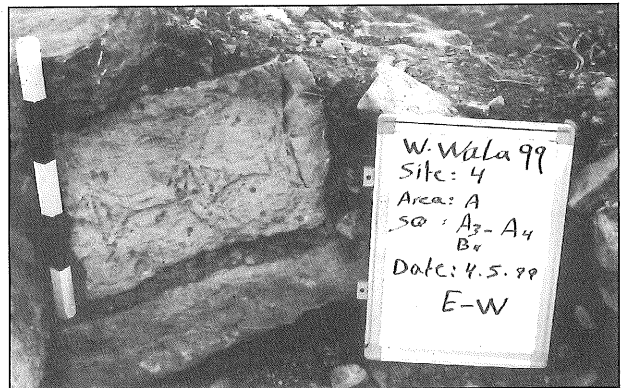 W. Wala 99
Site: 4
Area: A
SQ : A3 - A4
B4
Date: 4.5.99
E-W